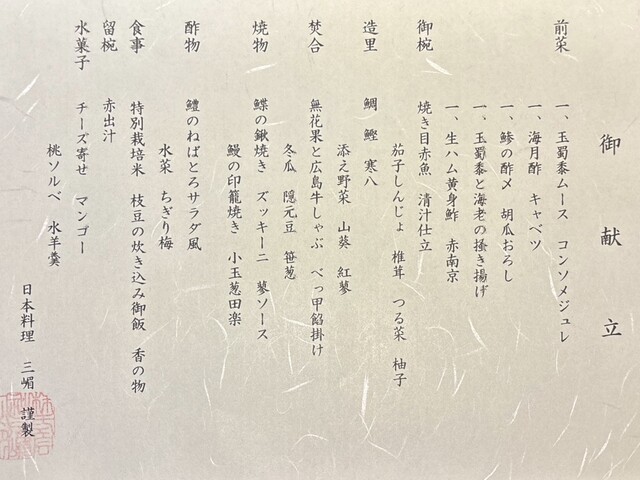 御献立
前菜
一、玉蜀黍ムース　コンソメジュレ
一、海月酢　キャベツ
一、鯵の酢〆　胡瓜おろし
一、玉蜀黍と海老の掻き揚げ
一、生ハム黄身鮓　赤南京
御椀
焼き目赤魚　清汁仕立
茄子しんじょ　椎茸　つる菜　柚子
造里
鯛　鰹　寒八
添え野菜　山葵　紅蓼
焚合
無花果と広島牛しゃぶ　べっ甲餡掛け
冬瓜　隠元豆　笹葱
焼物
鰈の鍬焼き　ズッキーニ　蓼ソース
鰻の印籠焼き　小玉葱田楽
酢物
鱧のねばとろサラダ風
水菜　ちぎり梅
食事
特別栽培米　枝豆の炊き込み御飯　香の物
留椀
赤出汁
水菓子
チーズ寄せ　マンゴー
桃ソルベ　水羊羹
日本料理　三嵋　謹製